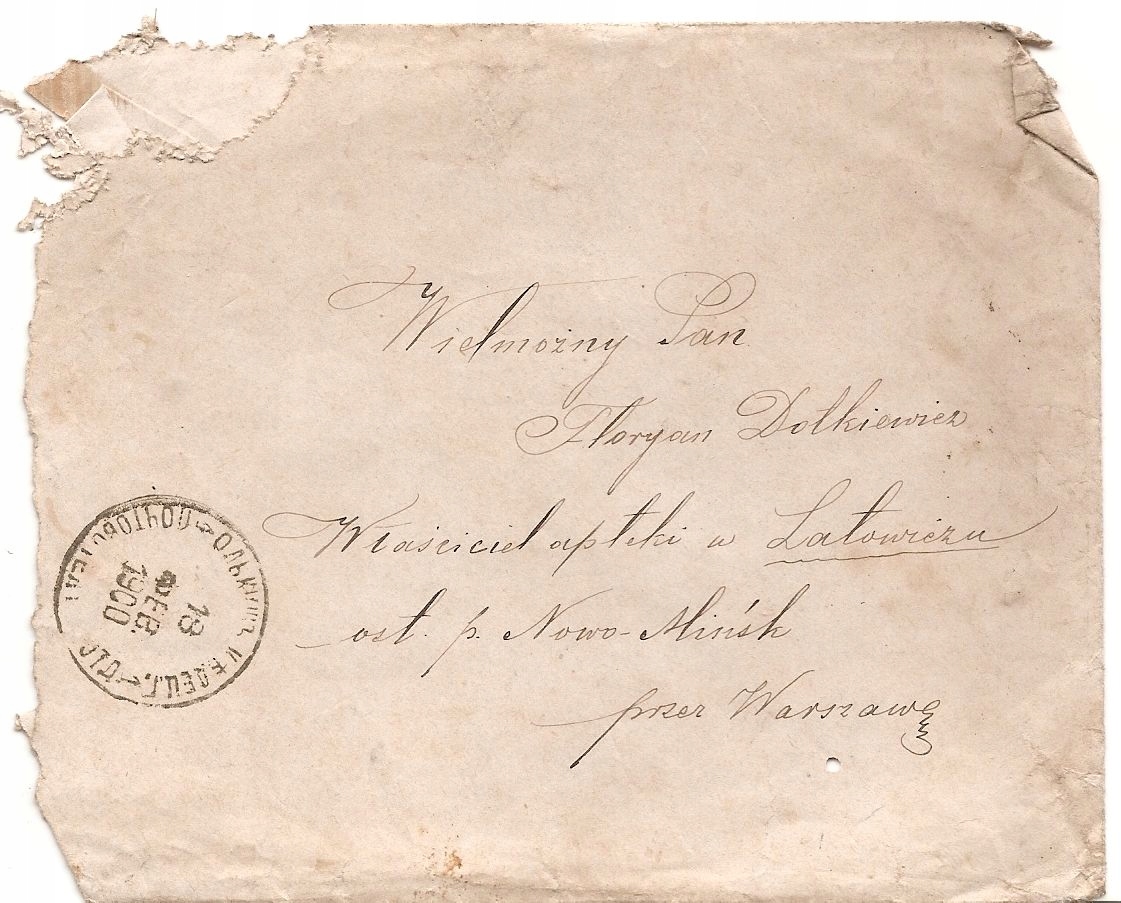 Wielmożny Pan
Floryan Dołkiewicz
Właściciel apteki w Latowiczu
ost. p. Nowo-Mińsk
przez Warszawę
18
ФЕВ
1900